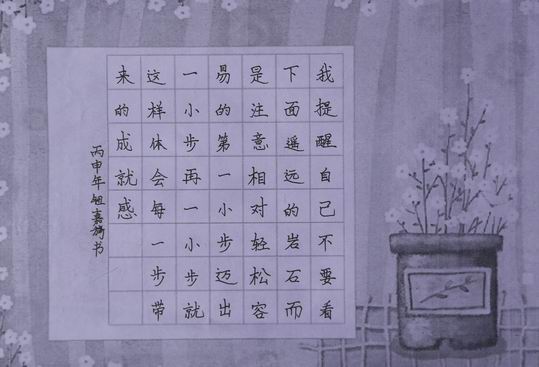 我提醒自己不要看
下面遥远的岩石而
是注意相对轻松容
易的第一小步迈出
一小步再一小步就
这样体会每一步带
来的成就感
丙申年钽嘉旖书